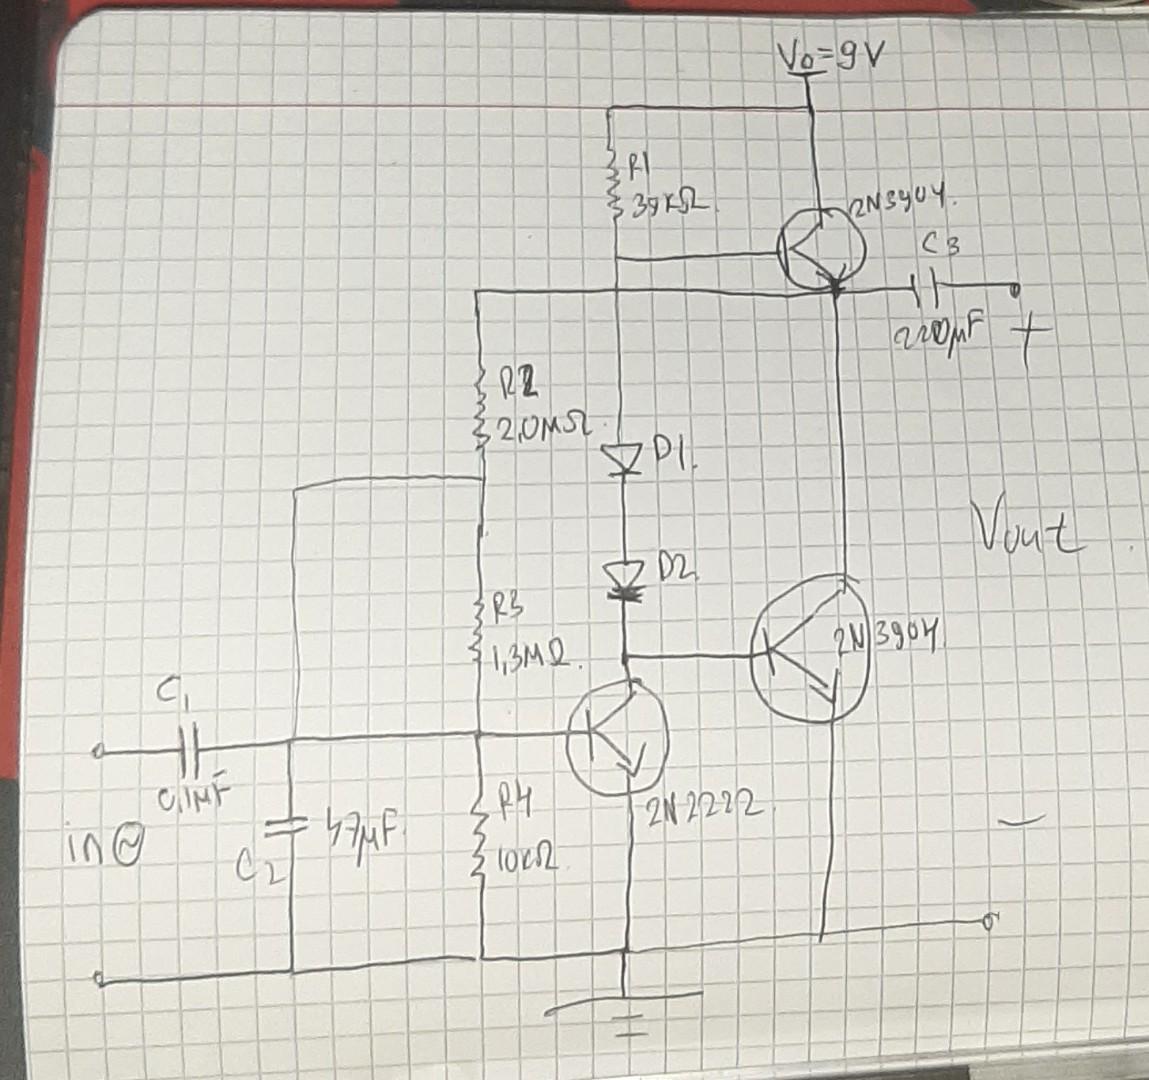 Vo=9V
R1
39KΩ
2N3904.
C3
220µF
+
R2
2,0MΩ.
D1.
Vout
D2
R3
1,3MΩ.
2N3904
C1
0,1MF
R4
10KΩ
2N2222
in
47µF
C2
−